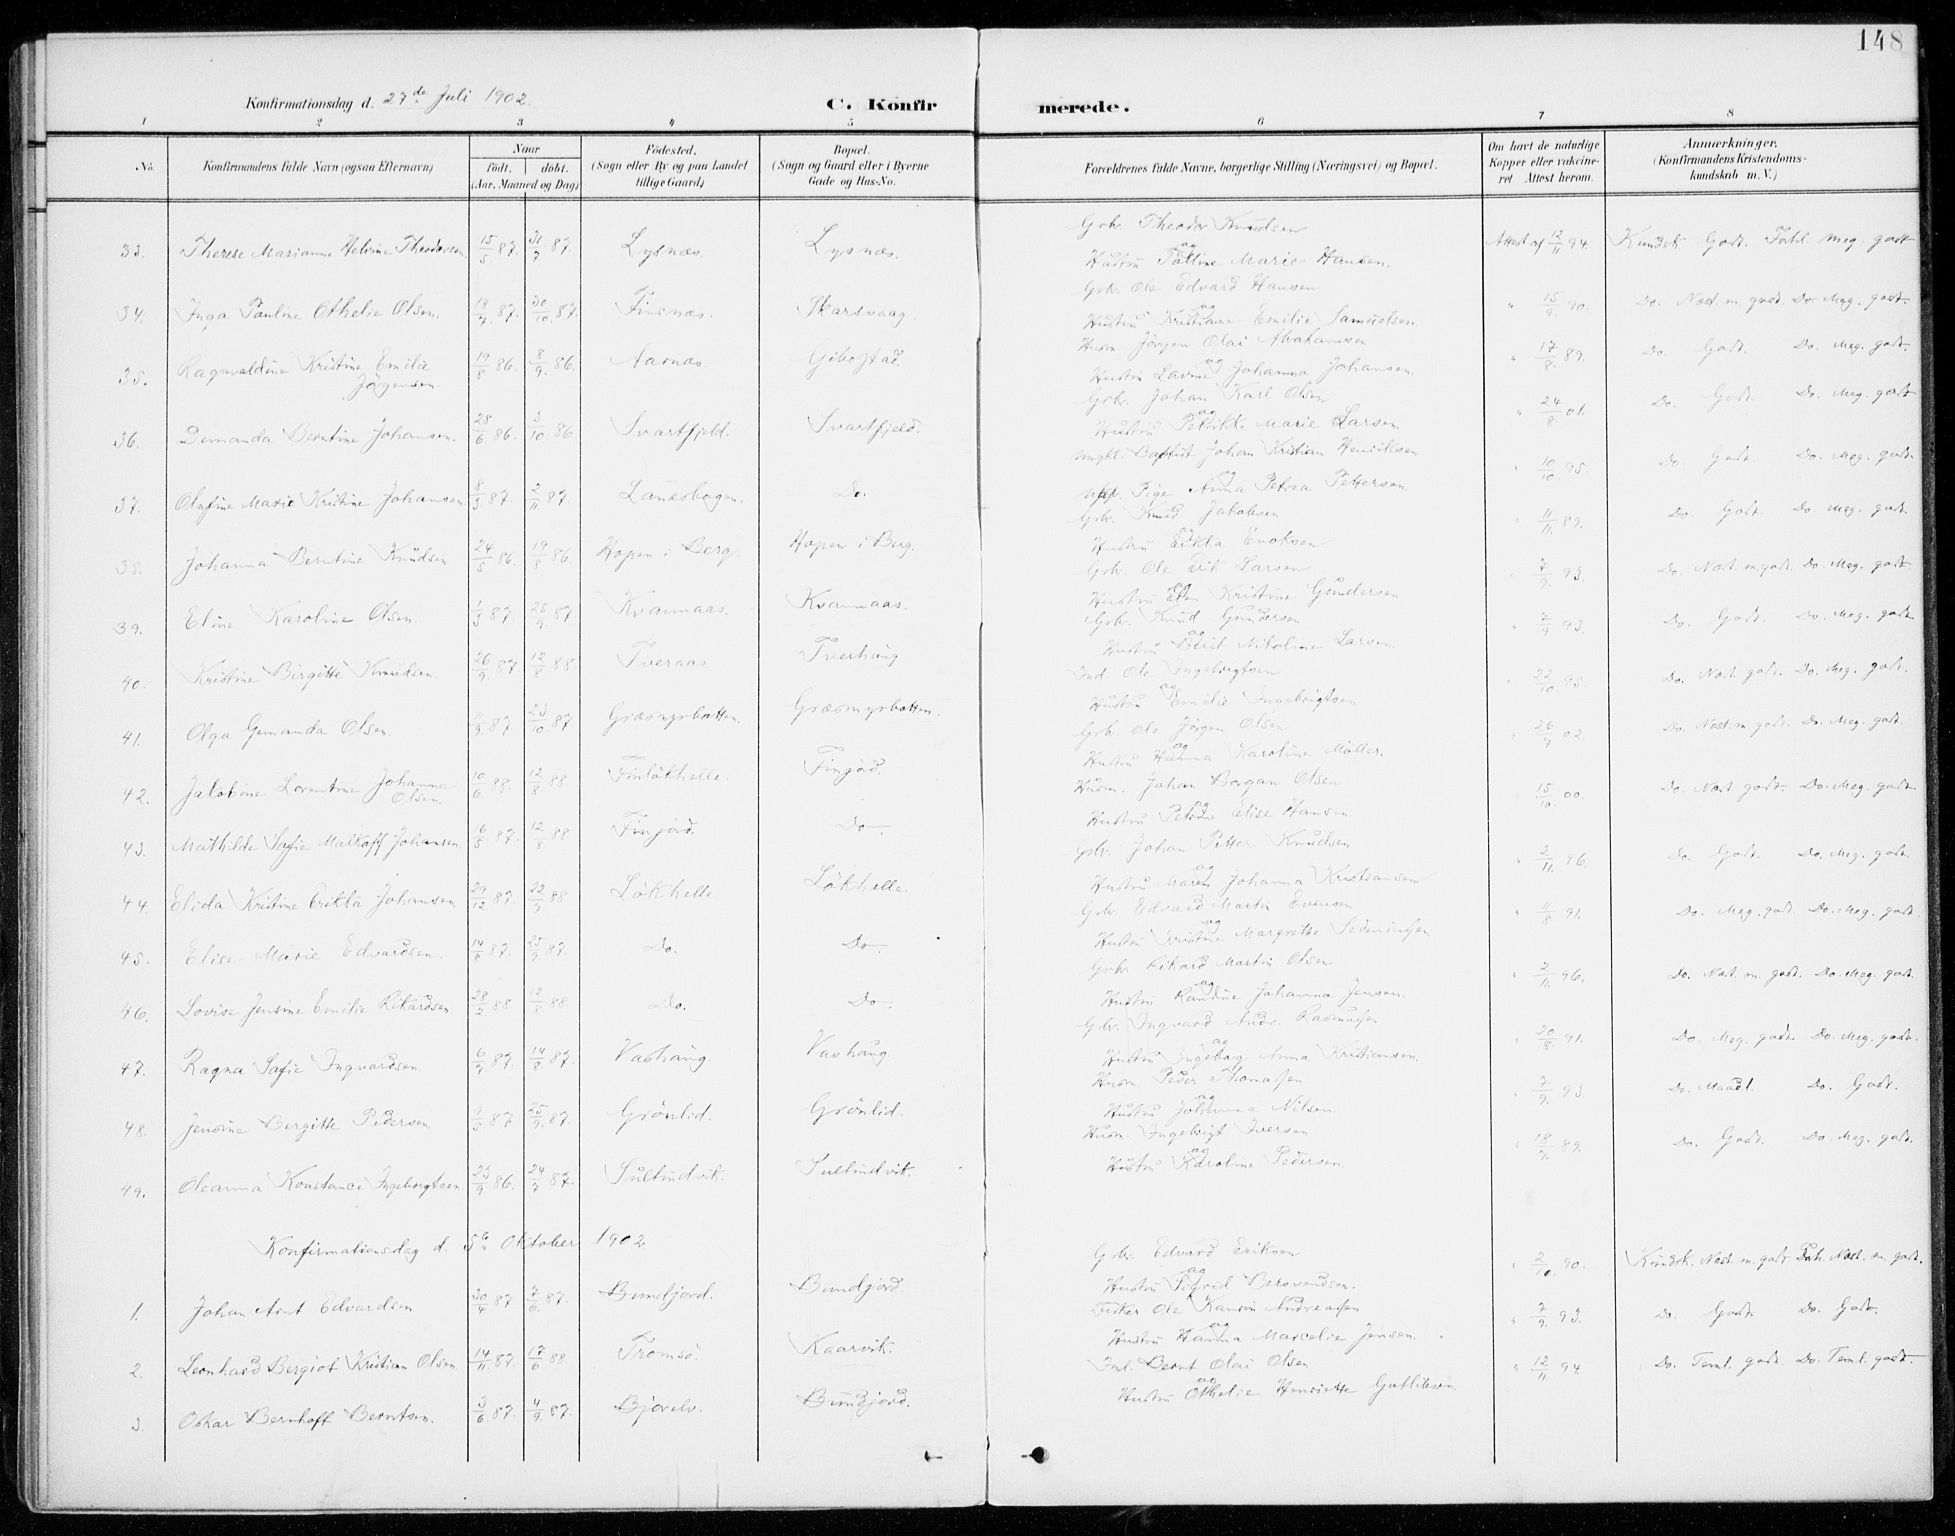 148
Konfirmationsdag d. 27de Juli 1902.
C. Konfirmerede.
1 2 3 4 5 6 7 8
No.
Konfirmandens fulde Navn (ogsaa Efternavn)
Naar
födt. döbt.
(Aar, Maaned og Dag)
Födested.
(Sogn eller By og paa Landet
tillige Gaard)
Bopæl.
(Sogn og Gaard eller i Byerne
Gade og Hus-No.
Forældrenes fulde Navne, borgerlige Stilling (Næringsvei) og Bopæl.
Om havt de naturlige
Kopper eller vakcine-
ret. Attest herom.
Anmærkninger.
(Konfirmandens Kristendoms-
kundskab m. V.)
33. Therese Marianne Helvine Theodorsen. 15/5 87. 31/7 87. Lysnæs. Lysnæs. Grbr. Theodor Knudsen Attest af 12/11 94. Kundsk. Godt. Forh. Meg. godt
og
Hustru Pauline Marie Hansen.
34. Inga Pauline Othelie Olsen. 18/7 87. 30/10 87. Finsnæs. Skarsvaag. Grbr. Ole Edvard Hansen " 15/9 90. Do. Næst. m. godt. Do. Meg. godt.
og
Hustru Kristiane Emilie Samuelsen
35. Ragnvaldine Kristine Emilie 19/8 86. 8/9 86. Aarnæs. Gibostad. Husm. Jörgen Olai Abrahamsen " 17/8 89. Do. Godt. Do. Meg. godt.
Jörgensen.
og
Hustru Lavine Johanna Johansen.
36. Demanda Berntine Johansen. 28/6 86. 3/10 86. Svartfjeld. Svartfjeld. Grbr. Johan Karl Olsen " 24/8 01. Do. Godt. Do. Meg. godt.
og
Hustru Petrikke Marie Larsen.
37. Olufine Marie Kristine Johansen. 8/3 87. 2/11 87. Lanæsbogen. Do. Ungkl. Baptist Johan Kristian Henriksen " 10/10 95 Do. Godt. Do. Meg. godt.
og
Pige Anna Petrea Pettersen.
38. Johanna Berntine Knudsen 24/5 86. 19/8 86. Hopen i Berg. Hopen i Berg. Grbr. Knud Jakobsen " 11/11 89. Do. Godt. Do. Meg. godt.
Hustru Erikka Enoksen
39. Eline Karoline Olsen. 1/3 87. 25/9 87. Kvannaas. Kvannaas. Grbr. Ole Erik Larsen " 7/9 93. Do. Næst m. godt. Do. Meg. godt
Hustru Ellen Kristine Gundersen
40. Kristine Birgitte Knudsen. 26/9 87. 12/8 88. Tveraas. Tverhaug Grbr. Knud Gundersen " 7/9 93. Do. Godt. Do. Meg. godt
og
Hustru Berit Nikoline Larsen.
41. Olga Gemanda Olsen. 9/9 87. 23/10 87 Græsmyrbotten. Græsmyrbotten. Ind. Ole Ingebrigtsen " 22/10 95. Do. Næst. godt. Do. Meg. godt.
og
Hustru Emilie Ingebrigtsen
42. Jakobine Lorentine Johanna 10/6 88. 12/8 88 Finlökhelle. Finjord. Grbr. Ole Jörgen Olsen. " 26/7 02. Do. Næst. m. godt. Do. Meg. godt.
Olsen.
og
Hustru Hanna Karoline Möller.
43. Mathilde Sofie Malkoff Johansen. 16/5 87. 12/8 88 Finjord. Do. Husm. Johan Borgan Olsen " 15/10 00. Do. Næst. godt. Do. Meg. godt.
og
Hustru Petrine Elise Hansen.
44. Elida Kristine Erikka Johansen. 29/12 87. 22/7 88 Lökhelle. Lökhelle. Grbr. Johan Petter Knudsen " 2/11 86. Do. Godt. Do. Meg. godt.
og
Hustru Maren Johanna Kristiansen
45. Elise Marie Edvardsen. 14/8 87. 25/9 87. Do. Do. Grbr. Edvard Martin Evensen " 11/8 91. Do. Meg. godt. Do. Meg. godt.
og
Hustru Kristine Margrethe
46. Lovise Jensine Emilie Rikardsen. 28/2 88 12/8 88 Do. Do. Grbr. Rikard Martin Olsen " 2/11 96. Do. Næst m. godt. Do. Meg. godt.
og
Hustru Randine Johanna Jensen.
47. Ragna Sofie Ingvardsen. 6/7 87. 14/8 87. Vashaug. Vashaug. Grbr. Ingvard Andr. Rasmussen " 20/8 91. Do. Meg. godt. Do. Meg. godt.
og
Hustru Ingeborg Anna Kristiansen.
48. Jensine Bergitte Pedersen 9/5 87. 25/9 87. Grönlid. Grönlid. Husm. Peder Thomassen " 7/9 93. Do. Maadl. Do. Godt.
og
Hustru Johanna Nilsen.
49. Oleanna Konstance Ingebrigtsen. 23/9 86. 24/7 87. Sultindvik. Sultindvik. Husm. Ingebrigt Iversen " 18/9 89. Do. Godt. Do. Meg. godt.
og
Hustru Karoline Pedersen.
Konfirmationsdag d. 5te Oktober 1902.
1. Johan Arnt Edvardsen 30/4 87 7/6 87. Bundjord. Bundjord. Grbr. Edvard Eriksen " 2/10 90. Kundsk. Næst m. godt. Forh. Næst. m. godt.
og
Hustru Sigrid Bersvendsen.
2. Leonhard Bergiot Kristian Olsen. 14/11 87. 17/6 88 Tromsö. Kaarvik. Fisker Ole Kansin Andreassen " 7/9 93. Do. Godt. Do. Godt.
og
Hustru Hanna Marcelie Jensen.
3. Oskar Bernhoff Berntsen. 3/6 87. 4/9 87. Bjorelv. Bundjord. Ind. Bernt Olai Olsen " 12/11 94 Do. Teml. godt. Do. Teml. godt.
og
Hustru Othelie Henriette Gotliksen